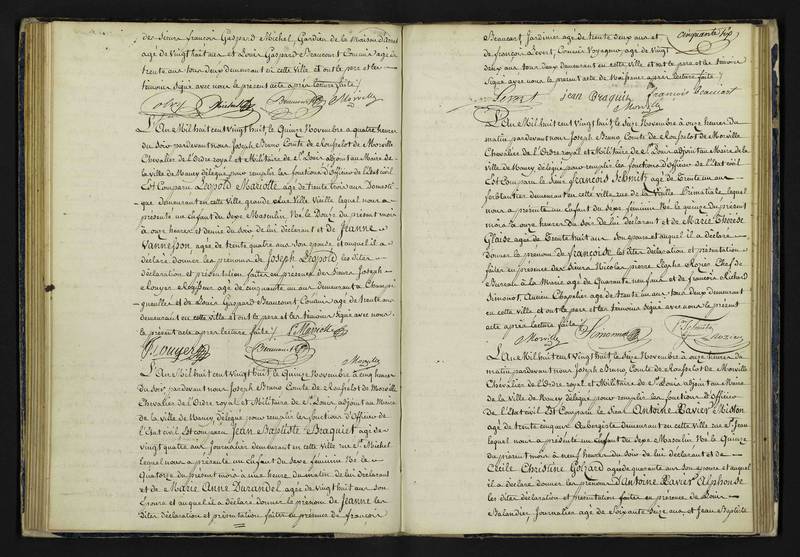 des Sieurs François Gaspard Michel, Gardien de la Maison d'arrêt
agé de Vingt huit ans et Louis Gaspard Beaucourt Commis agé de
trente ans tous deux demeurant en cette Ville et ont le pere et les
temoins Signé avec nous le présent acte après lecture faite /.
Morville
L'An Mil huit cent Vingt huit le Quinze Novembre a quatre heures
du Soir pardevant nous Joseph Bruno Comte de Rouxelot de Morville
Chevalier de l'Ordre royal et Militaire de St Louis adjoint au Maire de
la Ville de Nancy délégué pour remplir les fonctions d'Officier de l'Etat civil
Est Comparu Léopold Mariolle agé de trente trois ans Domesti
que demeurant en cette Ville grande rue Ville Vieille lequel nous a
présenté un Enfant du Sexe Masculin Né le Douze du présent mois
à onze heures et demie du Soir de lui déclarant et de Jeanne
Vannesson agée de trente quatre ans Son épouse et auquel il a
déclaré donner les prénoms de Joseph Léopold les dites
déclaration et présentation faites en présence des Sieurs Joseph
Rouyer agé de cinquante un ans demeurant a Champi
gneulles et de Louis Gaspard Beaucourt Commis agé de trente ans
demeurant en cette Ville et ont le pere et les temoins Signé avec nous
le présent acte après lecture faite /. L. Mariolle
J. Rouyer Beaucourt Morville
L'An Mil huit cent Vingt huit le Quinze Novembre à cinq heures
du Soir pardevant nous Joseph Bruno Comte de Rouxelot de Morville
Chevalier de l'Ordre royal et Militaire de St Louis adjoint au Maire
de la Ville de Nancy délégué pour remplir les fonctions d'Officier de
l'Etat civil Est comparu Jean Baptiste Braquiet agé de
vingt quatre ans Journalier demeurant en cette Ville rue St Michel
Lequel nous a présenté un Enfant du Sexe féminin Né le
Quatorze du présent mois à une heure du matin de lui déclarant
et de Marie Anne Durandel agée de Vingt huit ans Son
Epouse et auquel il a déclaré donner le prénom de Jeanne les
dites déclaration et présentation faites en présence de François
cinquante Six
Beaucart Jardinier agé de trente deux ans et
de François Levert, Commis Voyageur, agé de Vingt
deux ans tous deux demeurant en cette Ville et ont le pere et les temoins
Signé avec nous le présent acte de Naissance après lecture faite /.
Levert jean Braquiet françois Beaucart
Morville
L'An Mil huit cent Vingt huit le Seize Novembre à onze heures du
matin pardevant nous Joseph Bruno Comte de Rouxelot de Morville
Chevalier de l'Ordre royal et Militaire de St Louis adjoint au Maire de la
Ville de Nancy délégué pour remplir les fonctions d'Officier de l'Etat civil
Est Comparu le Sieur François Schmitz agé de Trente un ans
ferblantier demeurant en cette Ville rue de la Vieille Primatiale lequel
nous a présenté un Enfant du Sexe féminin Né le quinze du présent
mois à onze heures du Soir de lui déclarant et de Marie Thérèse
Glaise agée de Trente huit ans Son épouse et auquel il a déclaré
donner le prénom de Françoise les dites déclaration et présentation
faites en présence des Sieurs Nicolas pierre Elophe Rozier Chef de
Bureau à la Mairie agé de Quarante neuf ans et de françois Richard
Simonot, Ancien Chapelier agé de trente un ans tous deux demeurant
en cette Ville et ont le pere et les temoins Signé avec nous le présent
acte après Lecture faite /. F. Schmitz
Morville Simonot Rozier
L'An Mil huit cent Vingt huit le Seize Novembre à onze heures du
matin pardevant nous Joseph Bruno Comte de Rouxelot de Morville
Chevalier de l'Ordre royal et Militaire de St Louis adjoint au Maire
de la Ville de Nancy délégué pour remplir les fonctions d'Officier
de l'Etat civil Est Comparu le Sieur Antoine Xavier Husson
agé de trente cinq ans Aubergiste demeurant en cette Ville rue St Jean
lequel nous a présenté un Enfant du Sexe Masculin Né le Quinze
du présent mois à neuf heures du Soir de lui déclarant et de
Cécile Christine Gérard agée de quarante ans Son épouse et auquel
il a déclaré donner les prénoms D'Antoine Xavier Alphonse
les dites déclaration et présentation faites en présence de Louis
Balandier, Journalier agé de Soixante Seize ans, et Jean Baptiste